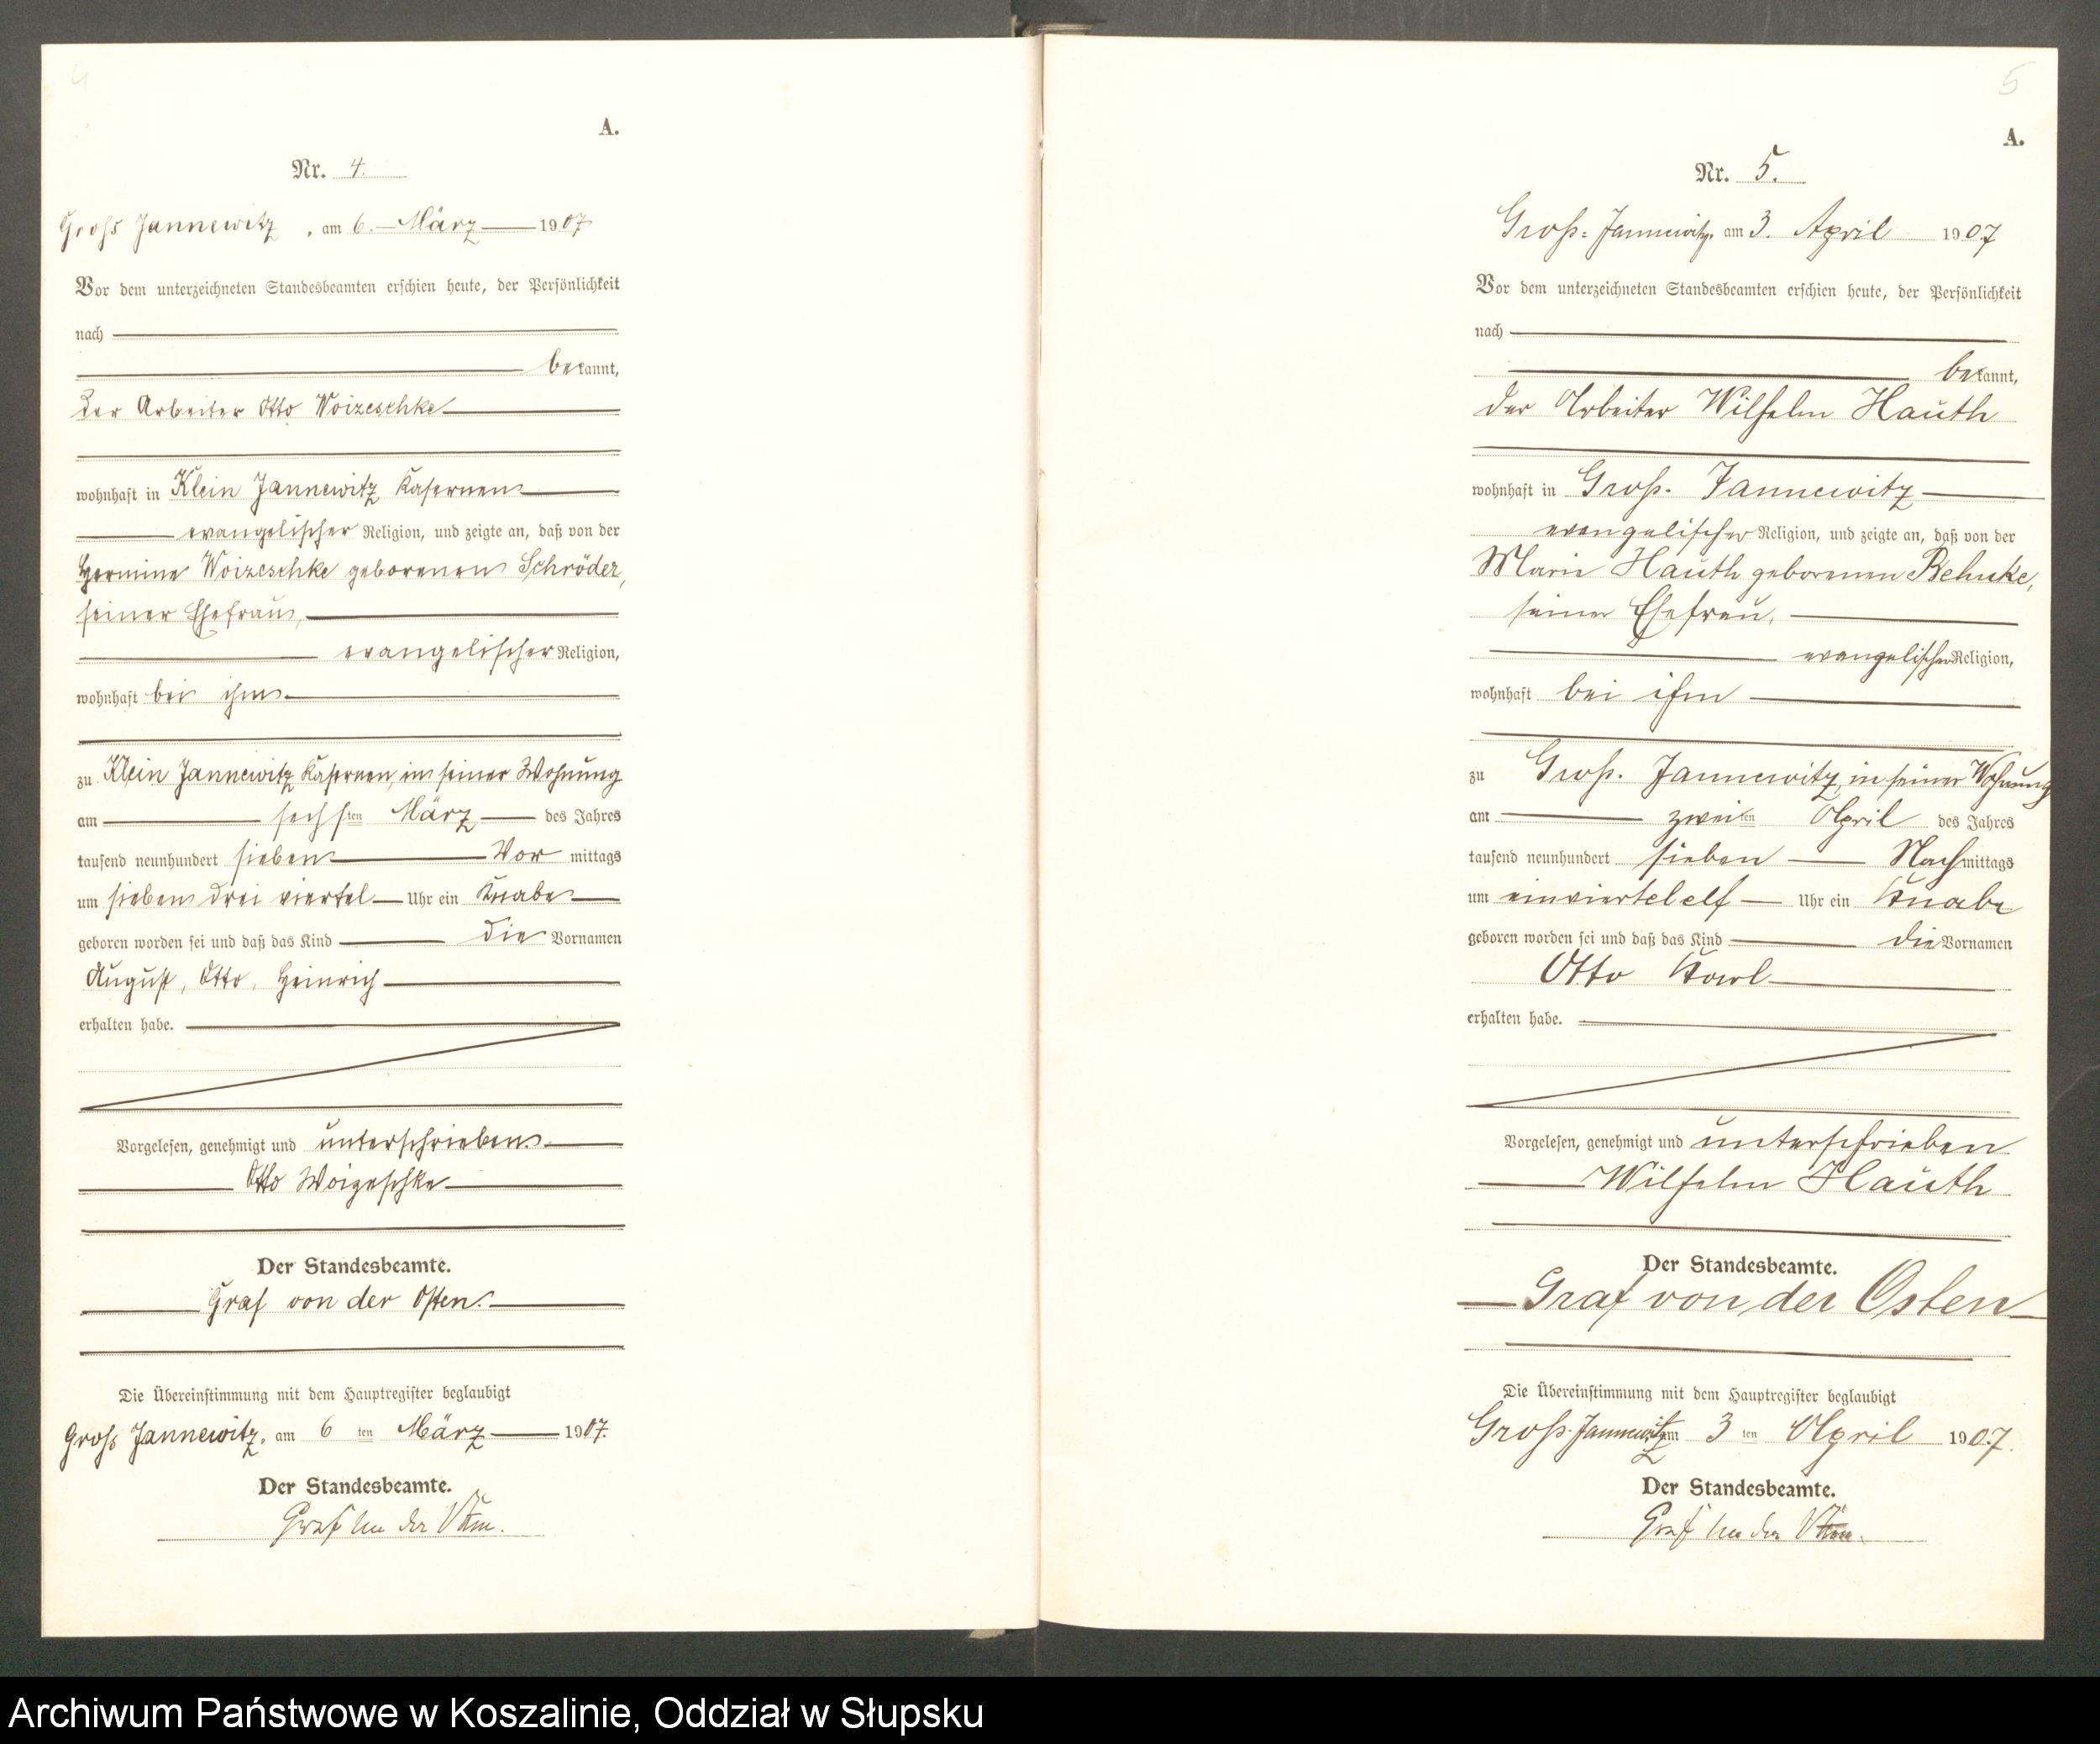 4
A.
Nr. 4.
Groß Jannewitz, am 6. März 1907
Vor dem unterzeichneten Standesbeamten erschien heute, der Persönlichkeit
nach
bekannt,
der Arbeiter Otto Woizeschke
wohnhaft in Klein Jannewitz Kasernen
evangelischer Religion, und zeigte an, daß von der
Hermine Woizeschke geborenen Schröder,
seiner Ehefrau,
evangelischer Religion,
wohnhaft bei ihm
zu Klein Jannewitz Kasernen, in seiner Wohnung
am sechsten März des Jahres
tausend neunhundert sieben Vormittags
um sieben drei viertel Uhr ein Knabe
geboren worden sei und daß das Kind die Vornamen
August, Otto, Heinrich
erhalten habe.
Vorgelesen, genehmigt und unterschrieben.
Otto Woizeschke
Der Standesbeamte.
Graf von der Osten.
Die Übereinstimmung mit dem Hauptregister beglaubigt
Groß Jannewitz, am 6 ten März 1907.
Der Standesbeamte.
Graf von der Osten.
5
A.
Nr. 5.
Groß-Jannewitz, am 3. April 1907
Vor dem unterzeichneten Standesbeamten erschien heute, der Persönlichkeit
nach
bekannt,
der Arbeiter Wilhelm Hauth
wohnhaft in Groß-Jannewitz
evangelischer Religion, und zeigte an, daß von der
Marie Hauth geborenen Behnke,
seiner Ehefrau,
evangelischer Religion,
wohnhaft bei ihm
zu Groß-Jannewitz, in seiner Wohnung
am zweiten April des Jahres
tausend neunhundert sieben Nachmittags
um einviertelelf Uhr ein Knabe
geboren worden sei und daß das Kind die Vornamen
Otto Karl
erhalten habe.
Vorgelesen, genehmigt und unterschrieben
Wilhelm Hauth
Der Standesbeamte.
Graf von der Osten
Die Übereinstimmung mit dem Hauptregister beglaubigt
Groß-Jannewitz am 3 ten April 1907.
Der Standesbeamte.
Graf von der Osten.
Archiwum Państwowe w Koszalinie, Oddział w Słupsku